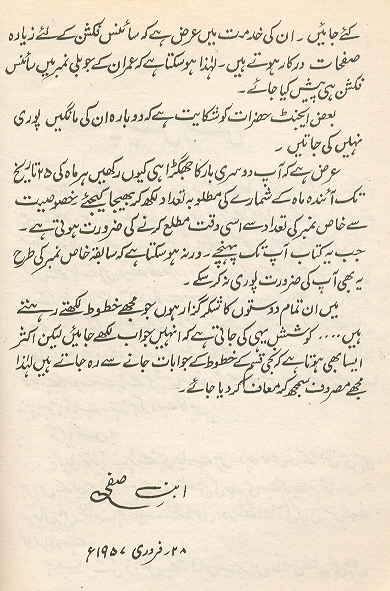 کئے جائیں ۔ ان کی خدمت میں عرض ہے کہ سائنس فکشن کے لئے زیادہ
صفحات درکار ہوتے ہیں ۔ لہٰذا ہو سکتا ہے کہ عمران کے جوبلی نمبر میں سائنس
فکشن ہی پیش کیا جائے ۔
بعض ایجنٹ حضرات کو شکایت ہے کہ دوبارہ ان کی مانگیں پوری
نہیں کی جاتیں ۔
عرض ہے کہ آپ دوسری بار کا جھگڑا ہی کیوں رکھیں ہر ماہ کی ۲۵ تاریخ
تک آئندہ ماہ کے شمارے کی مطلوبہ تعداد لکھ کر بھیجا کیجئے خصوصیت
سے خاص نمبر کی تعداد سے اسی وقت مطلع کرنے کی ضرورت ہوتی ہے ۔
جب یہ کتاب آپ تک پہنچے ۔ ورنہ ہو سکتا ہے کہ سابقہ خاص نمبر کی طرح
یہ بھی آپ کی ضرورت پوری نہ کر سکے ۔
میں ان تمام دوستوں کا شکر گزار ہوں جو مجھے خطوط لکھتے رہتے
ہیں .... کوشش یہی کی جاتی ہے کہ انہیں جواب لکھے جائیں لیکن اکثر
ایسا بھی ہوتا ہے کہ نجی قسم کے خطوط کے جوابات جانے سے رہ جاتے ہیں لہٰذا
مجھے مصروف سمجھ کر معاف کر دیا جائے ۔
ابن صفی
۲۸ ۔ فروری ۱۹۵۷ء